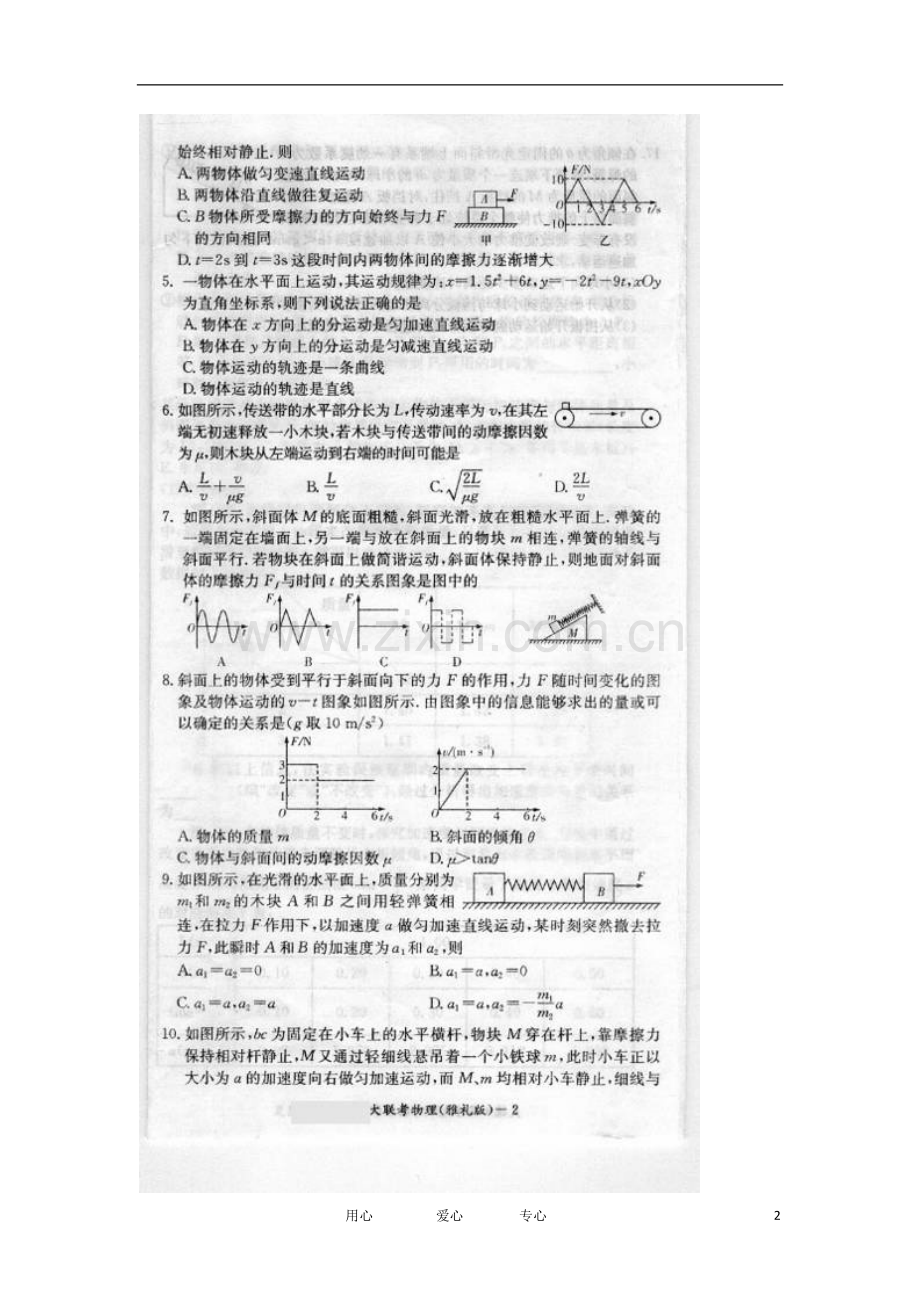 始终相对静止.则
A.两物体做匀变速直线运动
B.两物体沿直线做往复运动
C.B物体所受摩擦力的方向始终与力F
的方向相同
A
B
F
甲
F/N
10
O
1 2 3 4 5 6 t/s
-10
乙
D.t=2s到t=3s这段时间内两物体间的摩擦力逐渐增大
5.一物体在水平面上运动,其运动规律为:x=1.5t²+6t,y=-2t²-9t,xOy
为直角坐标系,则下列说法正确的是
A.物体在x方向上的分运动是匀加速直线运动
B.物体在y方向上的分运动是匀减速直线运动
C.物体运动的轨迹是一条曲线
D.物体运动的轨迹是直线
6.如图所示,传送带的水平部分长为L,传动速率为v,在其左
端无初速释放一小木块,若木块与传送带间的动摩擦因数
为μ,则木块从左端运动到右端的时间可能是
v
A.L/v+v/μg B.L/v C.√(2L/μg) D.2L/v
7.如图所示,斜面体M的底面粗糙,斜面光滑,放在粗糙水平面上.弹簧的
一端固定在墙面上,另一端与放在斜面上的物块m相连,弹簧的轴线与
斜面平行.若物块在斜面上做简谐运动,斜面体保持静止,则地面对斜面
体的摩擦力Ff与时间t的关系图象是图中的
Ff Ff Ff Ff
O t O t O t O t
m
M
A B C D
www.zixin.com.cn
8.斜面上的物体受到平行于斜面向下的力F的作用,力F随时间变化的图
象及物体运动的v—t图象如图所示.由图象中的信息能够求出的量或可
以确定的关系是(g取10 m/s²)
F/N
3
2
1
0 2 4 6 t/s
v/(m·s⁻¹)
2
1
0 2 4 6 t/s
A.物体的质量m B.斜面的倾角θ
C.物体与斜面间的动摩擦因数μ D.μ>tanθ
9.如图所示,在光滑的水平面上,质量分别为
m₁和m₂的木块A和B之间用轻弹簧相
A B F
连,在拉力F作用下,以加速度a做匀加速直线运动,某时刻突然撤去拉
力F,此瞬时A和B的加速度为a₁和a₂,则
A.a₁=a₂=0 B.a₁=a,a₂=0
C.a₁=a,a₂=a D.a₁=a,a₂=-m₁/m₂ a
10.如图所示,bc为固定在小车上的水平横杆,物块M穿在杆上,靠摩擦力
保持相对杆静止,M又通过轻细线悬吊着一个小铁球m,此时小车正以
大小为a的加速度向右做匀加速运动,而M、m均相对小车静止,细线与
大联考物理(雅礼版)—2
用心 爱心 专心 2